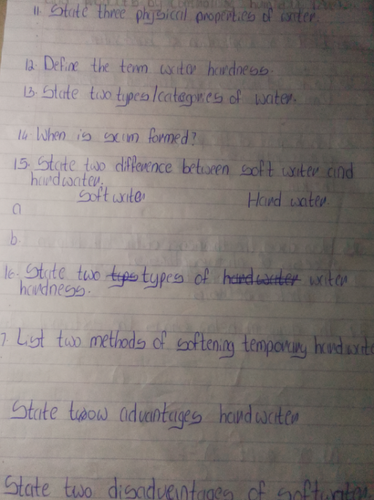 11. State three physical properties of water.
12. Define the term water hardness.
13. State two types/categories of water.
14. When is scum formed?
15. State two difference between soft water and
hardwater.
Soft water Hard water
a
b
16. State two types types of hardwater water
hardness.
7. List two methods of softening temporary hardwate
State twow advantages hardwater
State two disadvantages of softwater